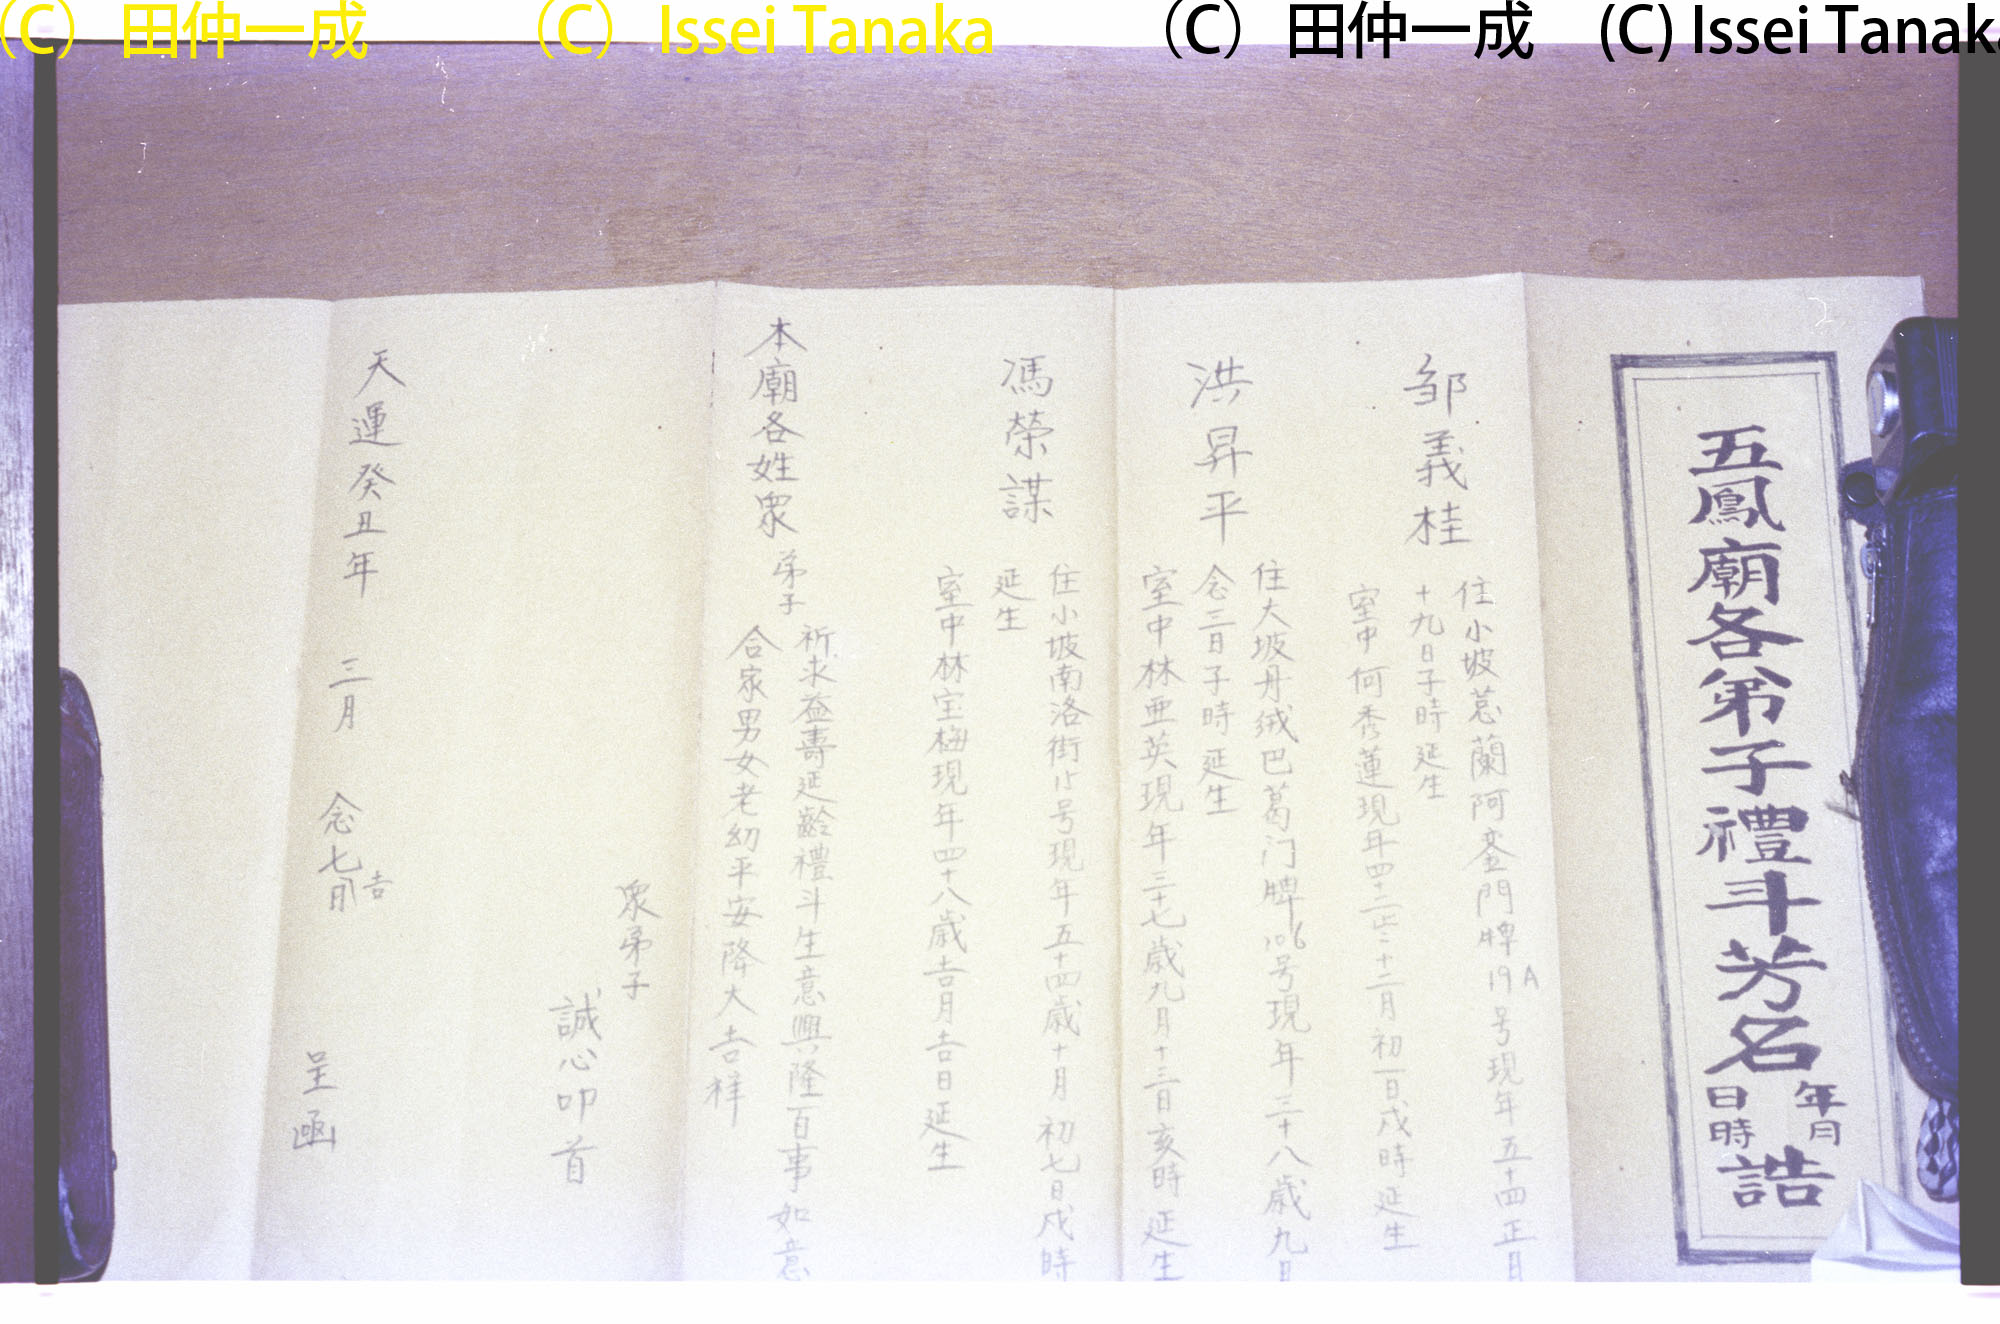 (C) 田仲一成 (C) Issei Tanaka (C) 田仲一成 (C) Issei Tanaka
五鳳廟各弟子禮斗芳名
年月
日時
誥
邹義桂
住小坡惹蘭阿奎門牌19A号現年五十四正月
十九日子時延生
室中何秀蓮現年四十二歲十二月初一日戌時延生
洪昇平
住大坡丹绒巴葛门牌106号現年三十八歲九月
念三日子時延生
室中林亜英現年三十七歲九月十三日亥時延生
馮榮謀
住小坡南洛街15号現年五十四歲十月初七日戌時
延生
室中林宝梅現年四十八歲吉月吉日延生
本廟各姓眾弟子
祈求益壽延齡禮斗生意興隆百事如意
合家男女老幼平安降大吉祥
眾弟子
誠心叩首
天運癸丑年 三月 念七吉日 呈函